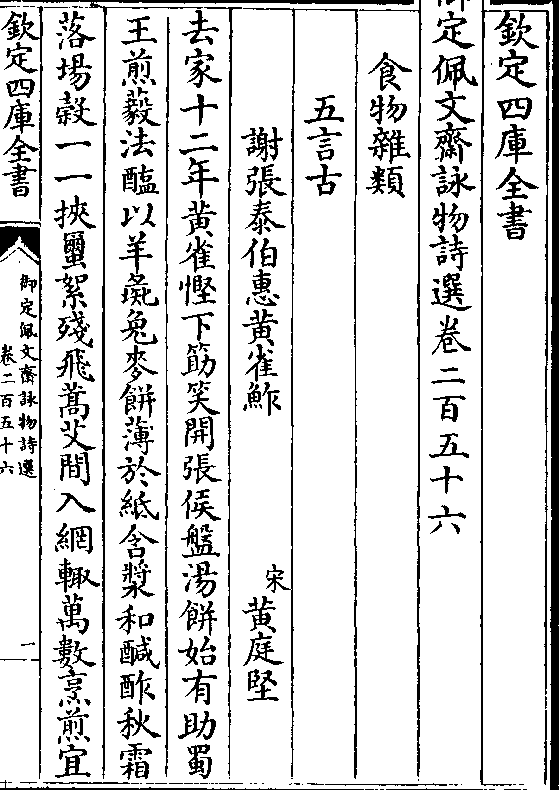 欽定四庫全書
御定佩文齋詠物詩選卷二百五十六
食物雜類
五言古
謝張泰伯惠黄雀鮓
宋黄庭堅
去家十二年黄雀慳下筯笑開張侯盤湯餅始有助蜀
王煎藙法醢以羊彘兔麥餅薄於紙含漿和醎酢秋霜
落場穀一一挾蠒絮殘飛蒿艾間入網輙萬數烹煎宜
欽定四庫全書
御定佩文齋詠物詩選
卷二百五十六
一